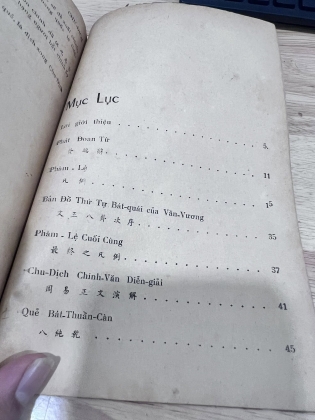 Mục Lục
Lời giới thiệu . . . . . . . . . . . . 5.
Phát Đoan Từ
Phàm - Lệ . . . . . . . . . . . . 11
凡 例 . . . . . . . . . . . . 15
Bản Đồ Thứ Tự Bát-quái của Văn-Vương
文 王 八 卦 次 序 . . . . . . . . . . 35
Phàm - Lệ Cuối Cùng
最 終 之 凡 例 . . . . . . . . . . 37
Chu-Dịch Chính-Văn Diễn-giải
周 易 正 文 演 解 . . . . . . . . . . 41
Quẻ Bát-Thuần-Càn
八 純 乾 . . . . . . . . . . . . 45